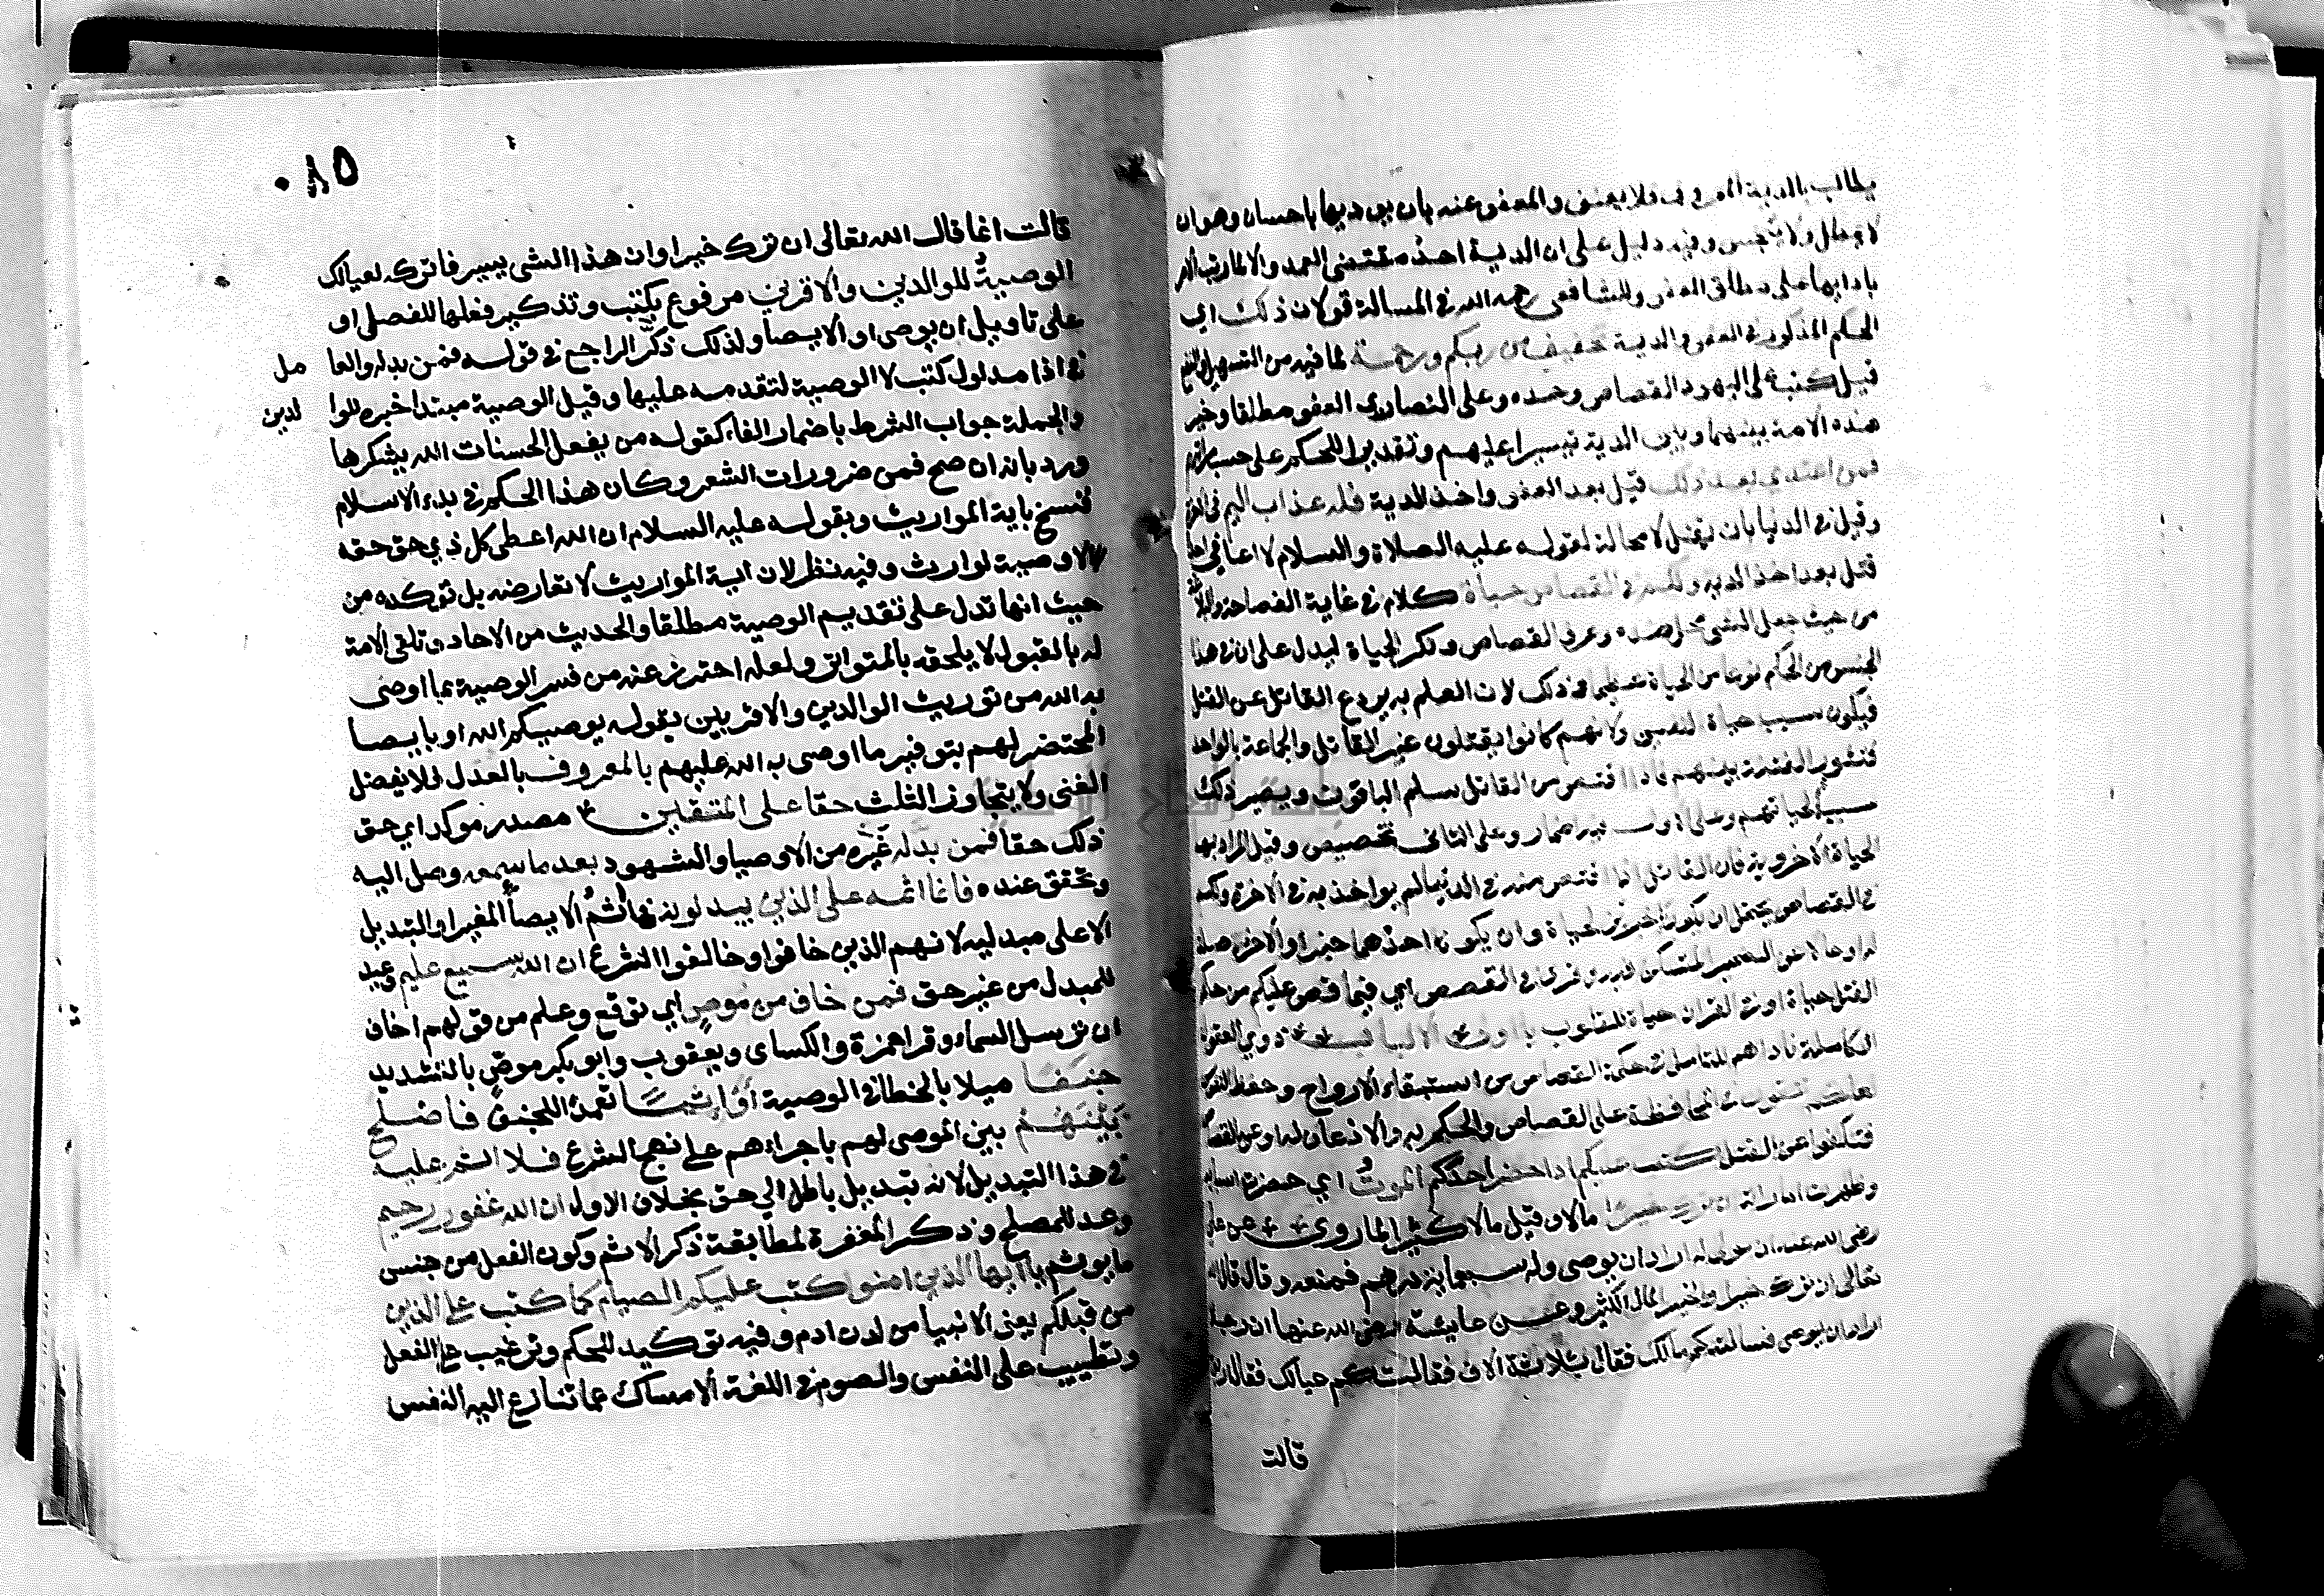 يطالب بالدية المعروف فلا يعنف والمعفو عنه بان يوديها باحسان وهو ان
لا يمطل ولا يبخس وفيه دليل على ان الدية احد مقتضى العمد والا لما رتب الامر
بادايها على مطلق العفو وللشافعى رحمه الله فى المسالة قولان ذلك اي
الحكم المذكور فى العفو والدية تخفيف من ربكم ورحمة لما فيه من التسهيل والنفع
قيل كتب على اليهود القصاص وحده وعلى النصارى العفو مطلقا وخير
هذه الامة بينهما وبين الدية تيسيرا عليهم وتقديرا للحكم على حسب مراتبهم
فمن اعتدى بعد ذلك قيل بعد العفو واخذ الدية فله عذاب اليم فى الاخرة
وقيل فى الدنيا بان يقتل لا محالة لقوله عليه الصلاة والسلام لا اعافى احدا
قتل بعد اخذ الدية ولكم فى القصاص حياة كلام فى غاية الفصاحة والبلاغة
من حيث جعل الشى محل ضده وعرف القصاص ونكر الحياة ليدل على ان فى هذا
الجنس من الحكم نوعا من الحياة عظيما وذلك لان العلم به يردع القاتل عن القتل
فيكون سبب حياة نفسين ولانهم كانوا يقتلون غير القاتل والجماعة بالواحد
فتثور الفتنة بينهم فاذا اقتص من القاتل سلم الباقون ويصير ذلك
سببا لحياتهم وعلى الاول فيه اضمار وعلى الثانى تخصيص وقيل المراد بها
الحياة الاخروية فان القاتل اذا اقتص منه فى الدنيا لم يواخذ به فى الاخرة ولكم
فى القصاص يحتمل ان يكونا خبرين لحياة وان يكون احدهما خبرا والاخر صلة
له او حالا عن الضمير المستكن فيه وقرئ فى القصص اي فيما قص عليكم من حكم
القتل حياة او فى القران حياة للقلوب يا اولى الالباب ذوي العقول
الكاملة ناداهم للتامل فى حكمة القصاص من استبقاء الارواح وحفظ النفوس
لعلكم تتقون فى المحافظة على القصاص والحكم به والاذعان له او عن القصاص
فتكفوا عن القتل كتب عليكم اذا حضر احدكم الموت اي حضرت اسبابه
وظهرت اماراته ان ترك خيرا مالا وقيل مالا كثيرا لما روى عن على
رضى الله عنه ان مولى له اراد ان يوصى وله سبعماية درهم فمنعه وقال قال الله
تعالى ان ترك خيرا والخير المال الكثير وعن عايشة رضى الله عنها ان رجلا
اراد ان يوصى فسالته كم مالك فقال ثلاثة الاف فقالت كم عيالك فقال اربعة
قالت
٨٥
قالت انما قال الله تعالى ان ترك خيرا وان هذا الشى يسير فاتركه لعيالك
الوصية للوالدين والاقربين مرفوع بكتب وتذكير فعلها للفصل او
على تاويل ان يوصى او الايصا ولذلك ذكر الراجع فى قوله فمن بدله والعا مل
فى اذا مدلول كتب لا الوصية لتقدمه عليها وقيل الوصية مبتدا خبره للوا لدين
والجملة جواب الشرط باضمار الفاء كقوله من يفعل الحسنات الله يشكرها
ورد بانه ان صح فمن ضرورات الشعر وكان هذا الحكم فى بدء الاسلام
فنسخ باية المواريث وبقوله عليه السلام ان الله اعطى كل ذي حق حقه
الا لا وصية لوارث وفيه نظر لان اية المواريث لا تعارضه بل توكده من
حيث انها تدل على تقديم الوصية مطلقا والحديث من الاحاد وتلقى الامة
له بالقبول لا يلحقه بالمتواتر ولعله احترز عنه من فسر الوصية بما اوصى
به الله من توريث الوالدين والاقربين بقوله يوصيكم الله او بايصا
المحتضر لهم بتوفير ما اوصى به الله عليهم بالمعروف بالعدل فلا يفضل
الغنى ولا يتجاوز الثلث حقا على المتقين مصدر موكد اي حق
ذلك حقا فمن بدله غيره من الاوصيا والشهود بعد ما سمعه وصل اليه
وتحقق عنده فانما اثمه على الذين يبدلونه فما اثم الايصا المغير او التبديل
الا على مبدليه لانهم الذين خافوا وخالفوا الشرع ان الله سميع عليم وعيد
للمبدل من غير حق فمن خاف من موص اي توقع وعلم من قولهم اخاف
ان ترسل السماء وقرا حمزة والكساى ويعقوب وابو بكر موصّ بالتشديد
جنفا ميلا بالخطا فى الوصية او اثما تعمدا للجنف فاصلح
بينهم بين الموصى لهم باجراءهم على نهج الشرع فلا اثم عليه
فى هذا التبديل لانه تبديل باطل الى حق بخلاف الاول ان الله غفور رحيم
وعد للمصلح وذكر المغفرة لمطابقة ذكر الاثم وكون الفعل من جنس
ما يوثم يا ايها الذين امنوا كتب عليكم الصيام كما كتب على الذين
من قبلكم يعنى الانبيا من لدن ادم وفيه توكيد للحكم وترغيب على الفعل
وتطييب على النفس والصوم فى اللغة الامساك عما تنازع اليه النفس